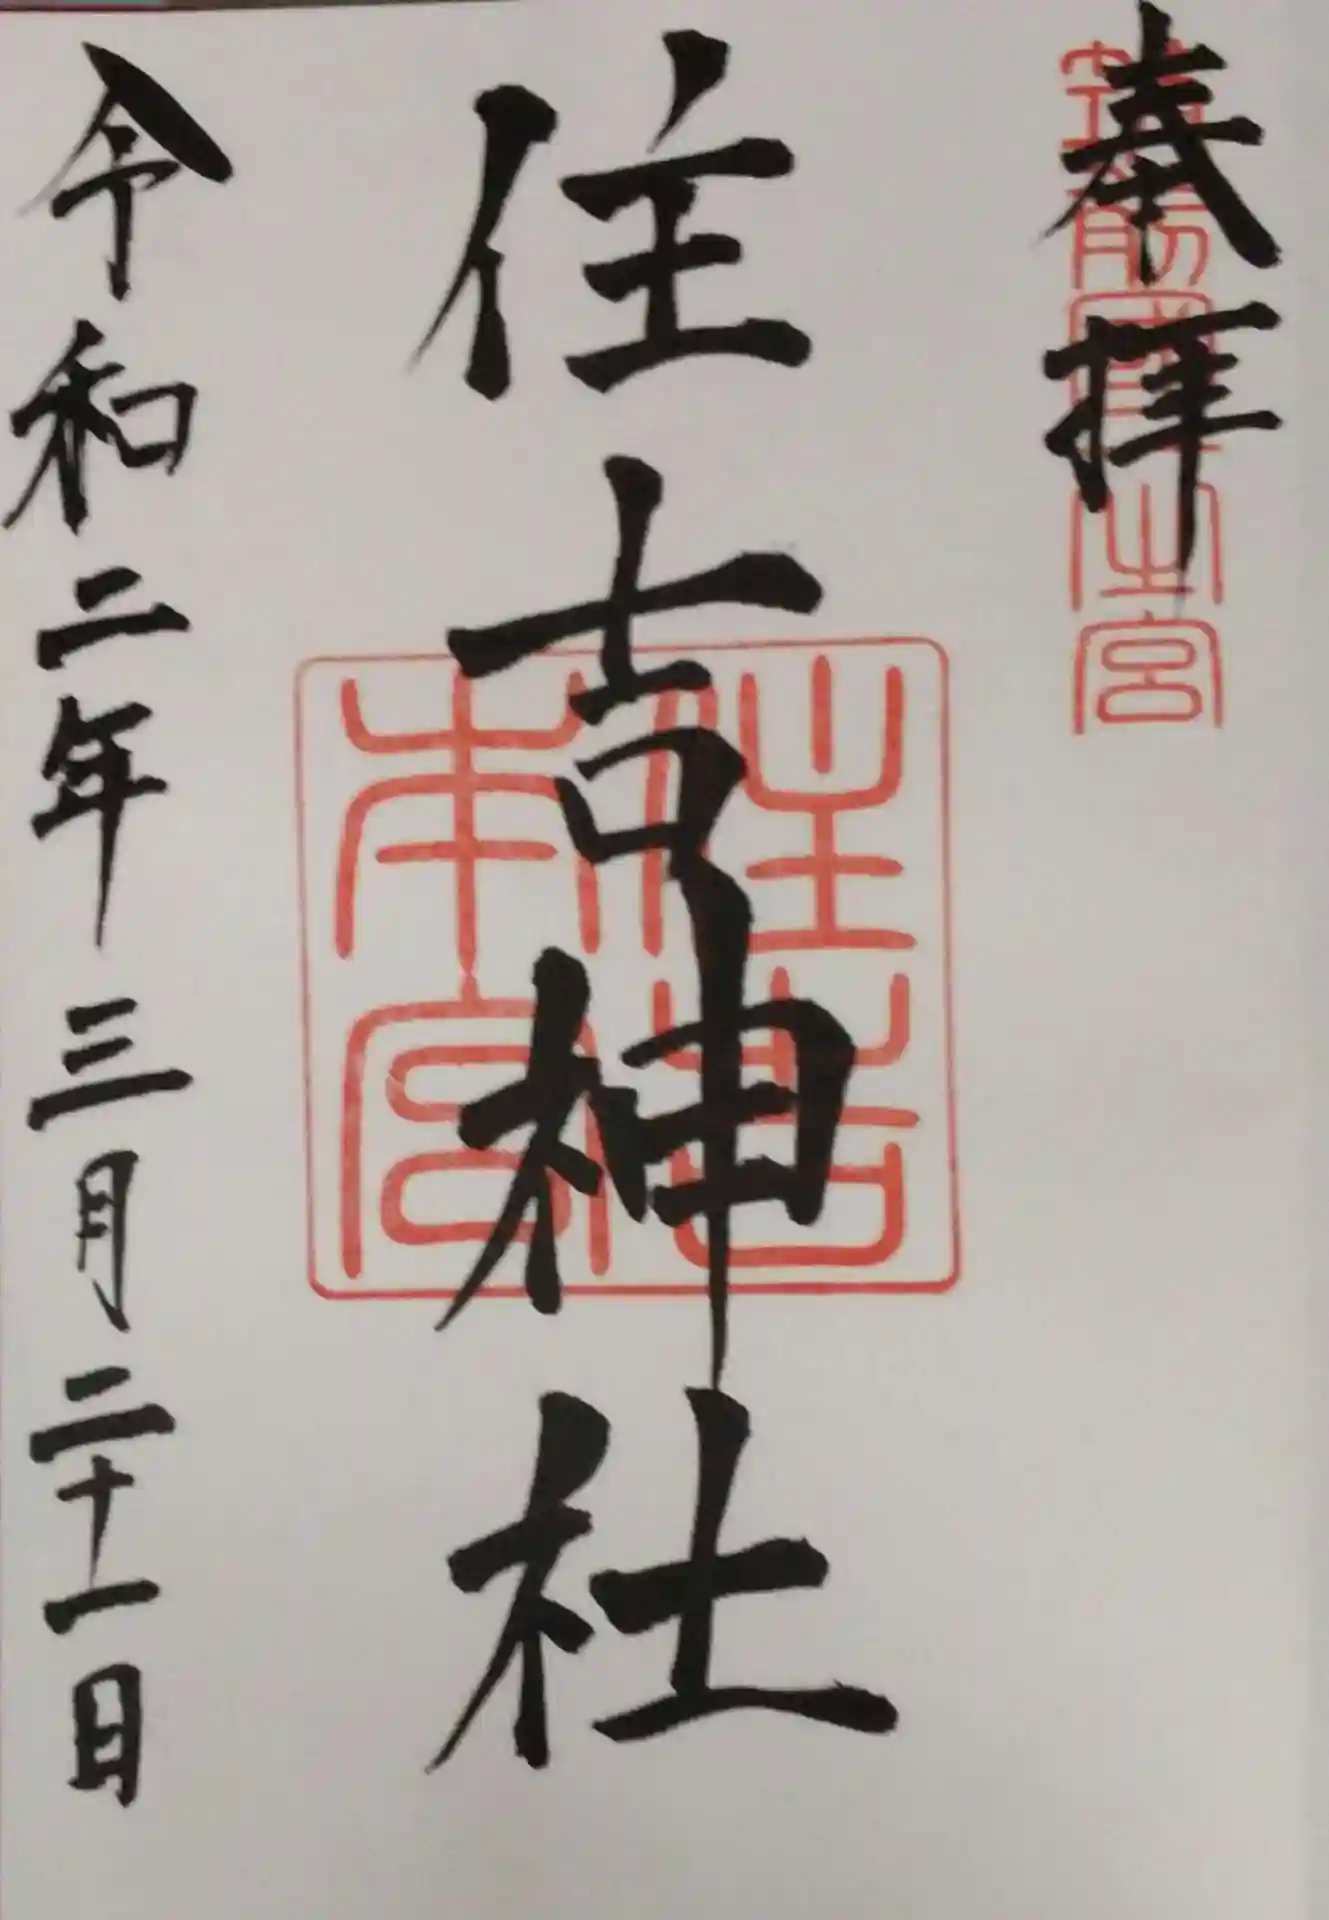 奉拝
筑前國一之宮
住吉神社
住吉本宮
令和二年三月二十一日